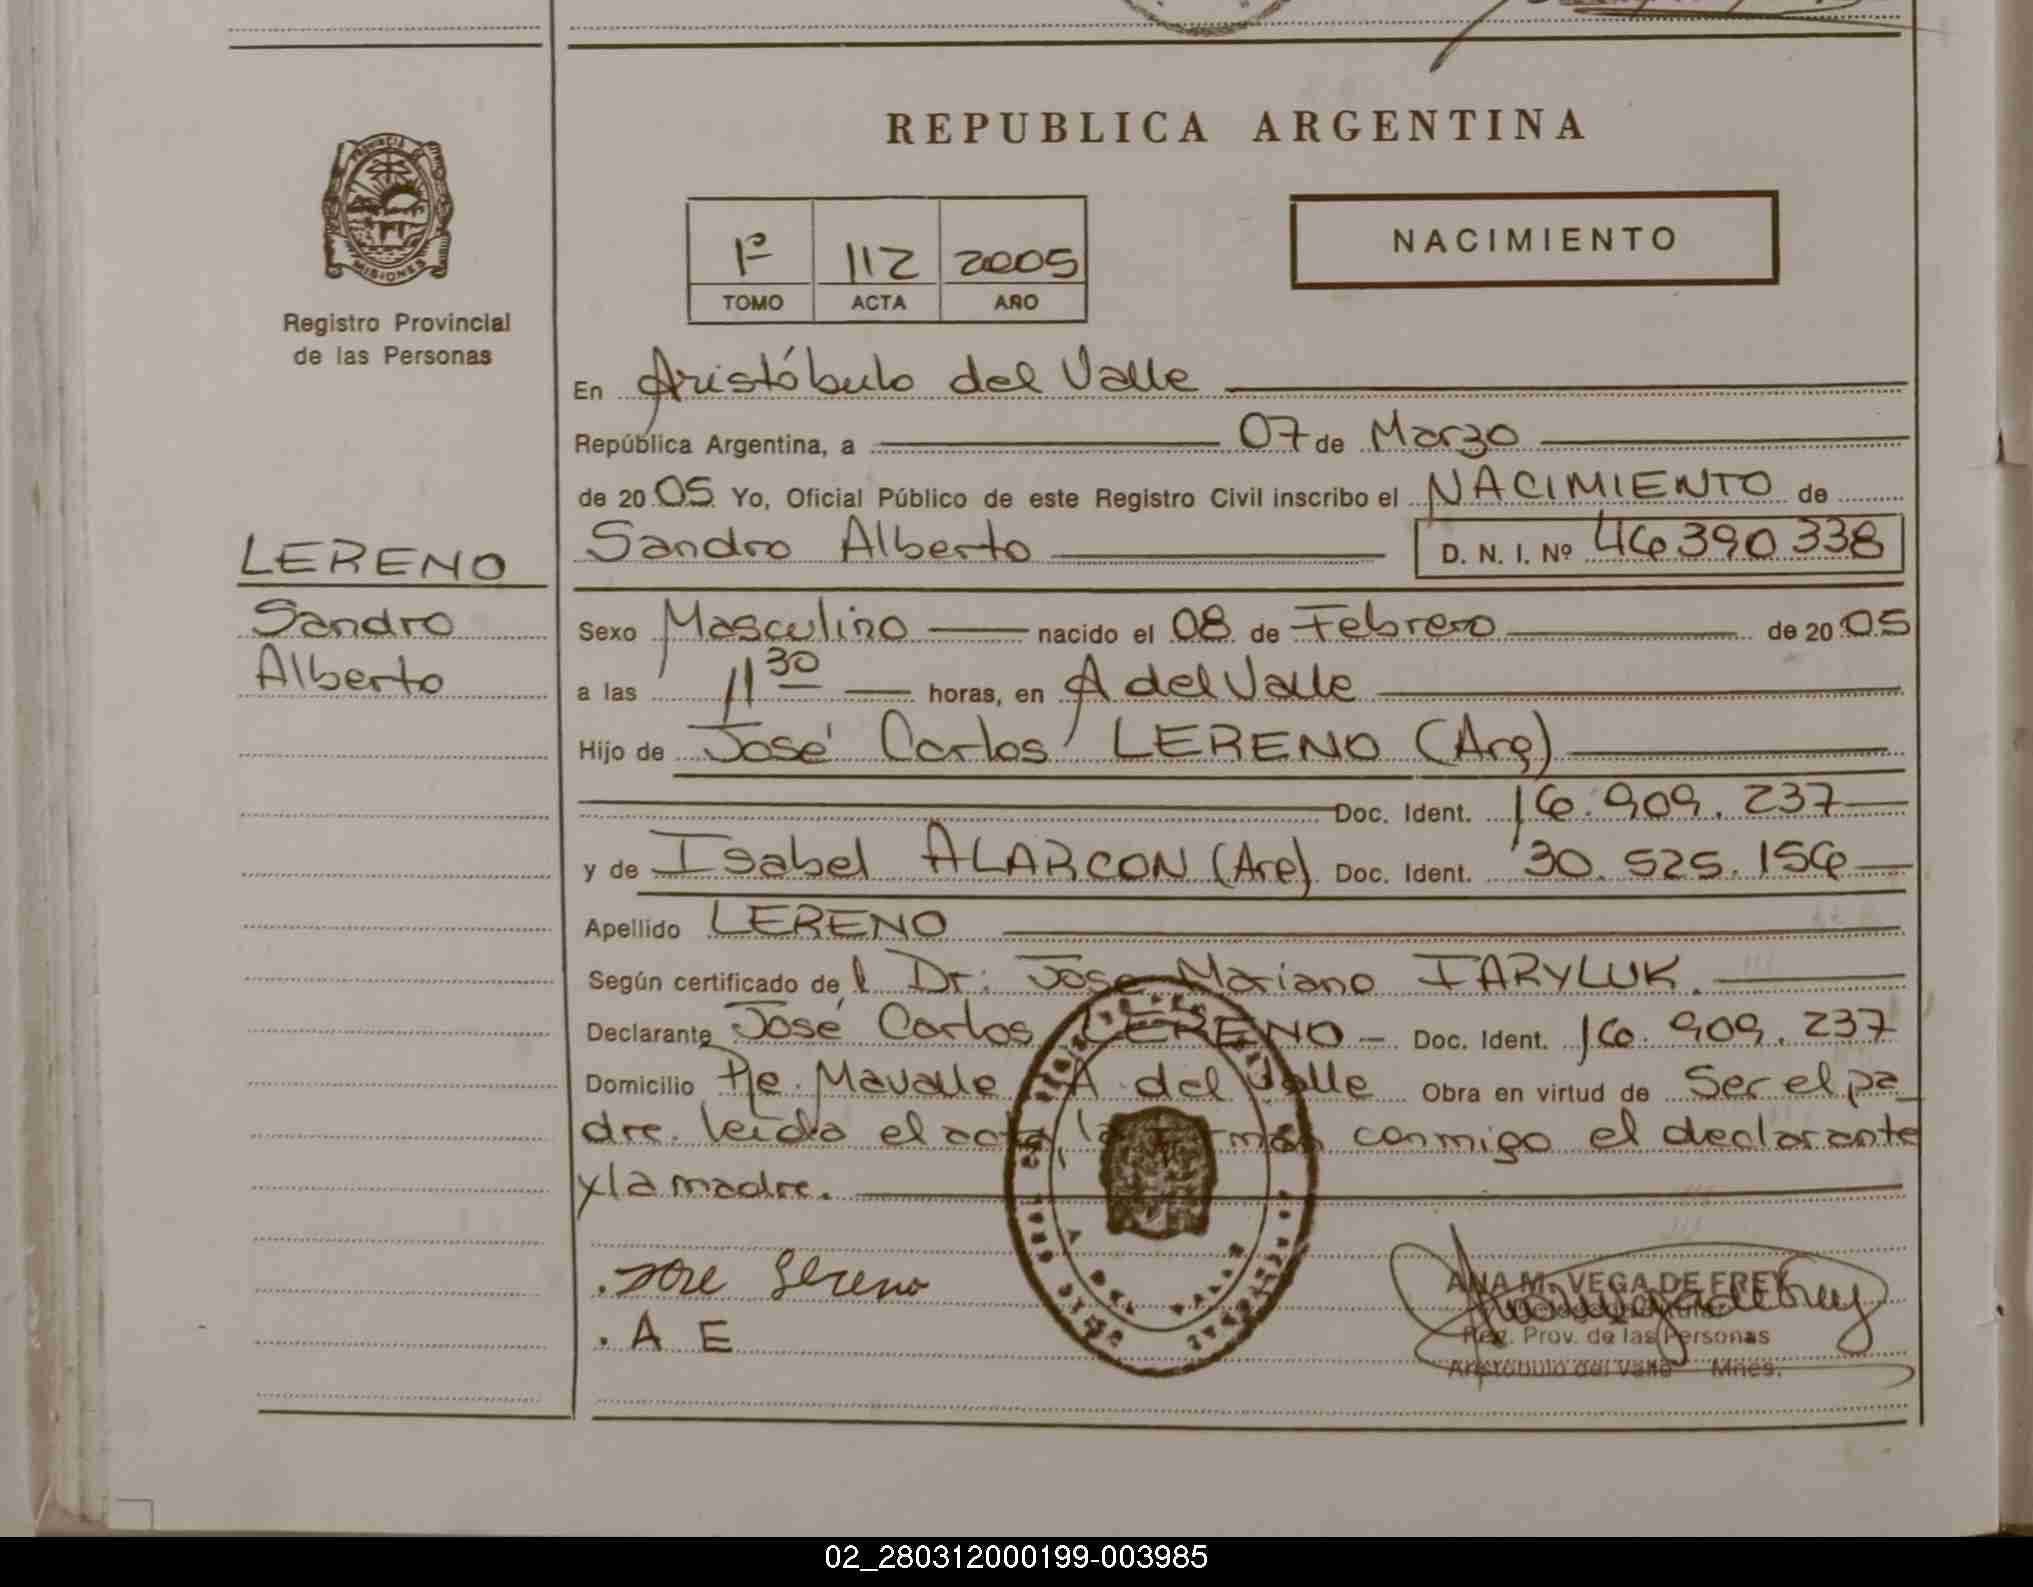 REPUBLICA ARGENTINA
PROVINCIA DE
MISIONES
Registro Provincial
de las Personas
1º 112 2005
TOMO ACTA AÑO
NACIMIENTO
En Aristóbulo del Valle
República Argentina, a 07 de Marzo
de 2005 Yo, Oficial Público de este Registro Civil inscribo el NACIMIENTO de
Sandro Alberto D. N. I. Nº 46390338
LERENO
Sandro
Alberto
Sexo Masculino nacido el 08 de Febrero de 2005
a las 11 30 horas, en A del Valle
Hijo de José Carlos LERENO (Arg)
Doc. Ident. 16.909.237
y de Isabel ALARCON (Arg) Doc. Ident. 30.525.156
Apellido LERENO
Según certificado del Dr: Jose Mariano IARYLUK.
Declarante José Carlos LERENO - Doc. Ident. 16.909.237
Domicilio Pje. Mavalle A del Valle Obra en virtud de Ser el pa
dre. leída el acta, la firman conmigo el declarante
y la madre.
. Jose Lereno
. A E
ANA M. VEGA DE FREY
Reg. Prov. de las Personas
Aristóbulo del Valle Mnes.
02_280312000199-003985